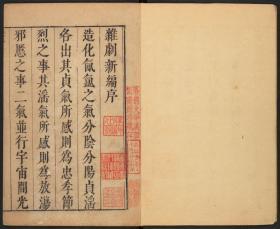 雜劇新編序
造化氤氳之氣分陰分陽貞淫
各出其貞氣所感則為忠孝節
烈之事其淫氣所感則為放蕩
邪慝之事二氣並行宇宙間光